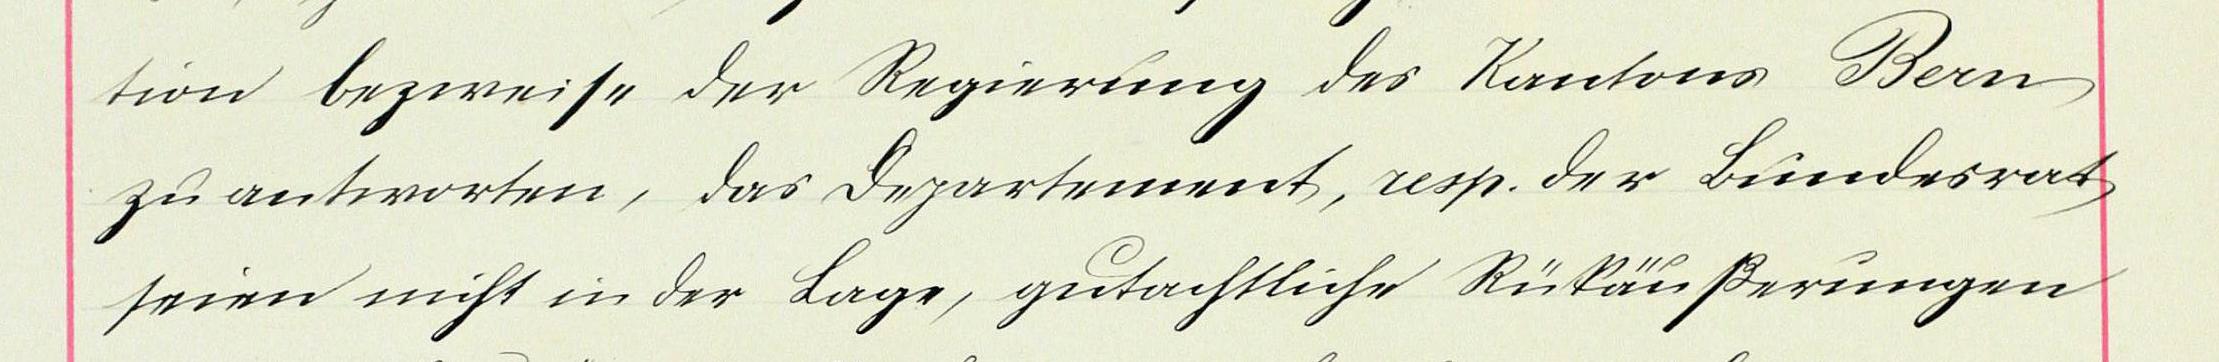 tion bezweise der Regierung des Kantons Bern
zu antworten, das Departement, resp. der Bundesrat
seien nicht in der Lage, gutachtliche Rükäußerungen